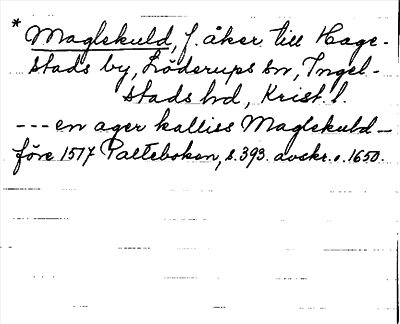 * Maglekuld, f. åker till Hage-
stads by, Löderups sn, Ingel-
stads hd, Krist. l.
--- en ager kalliss Maglekuld —
före 1517 Palteboken, s. 393. avskr. o. 1650.